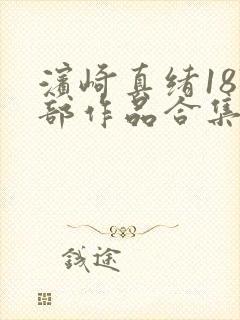 濱崎真绪18
部作品合集
钱途